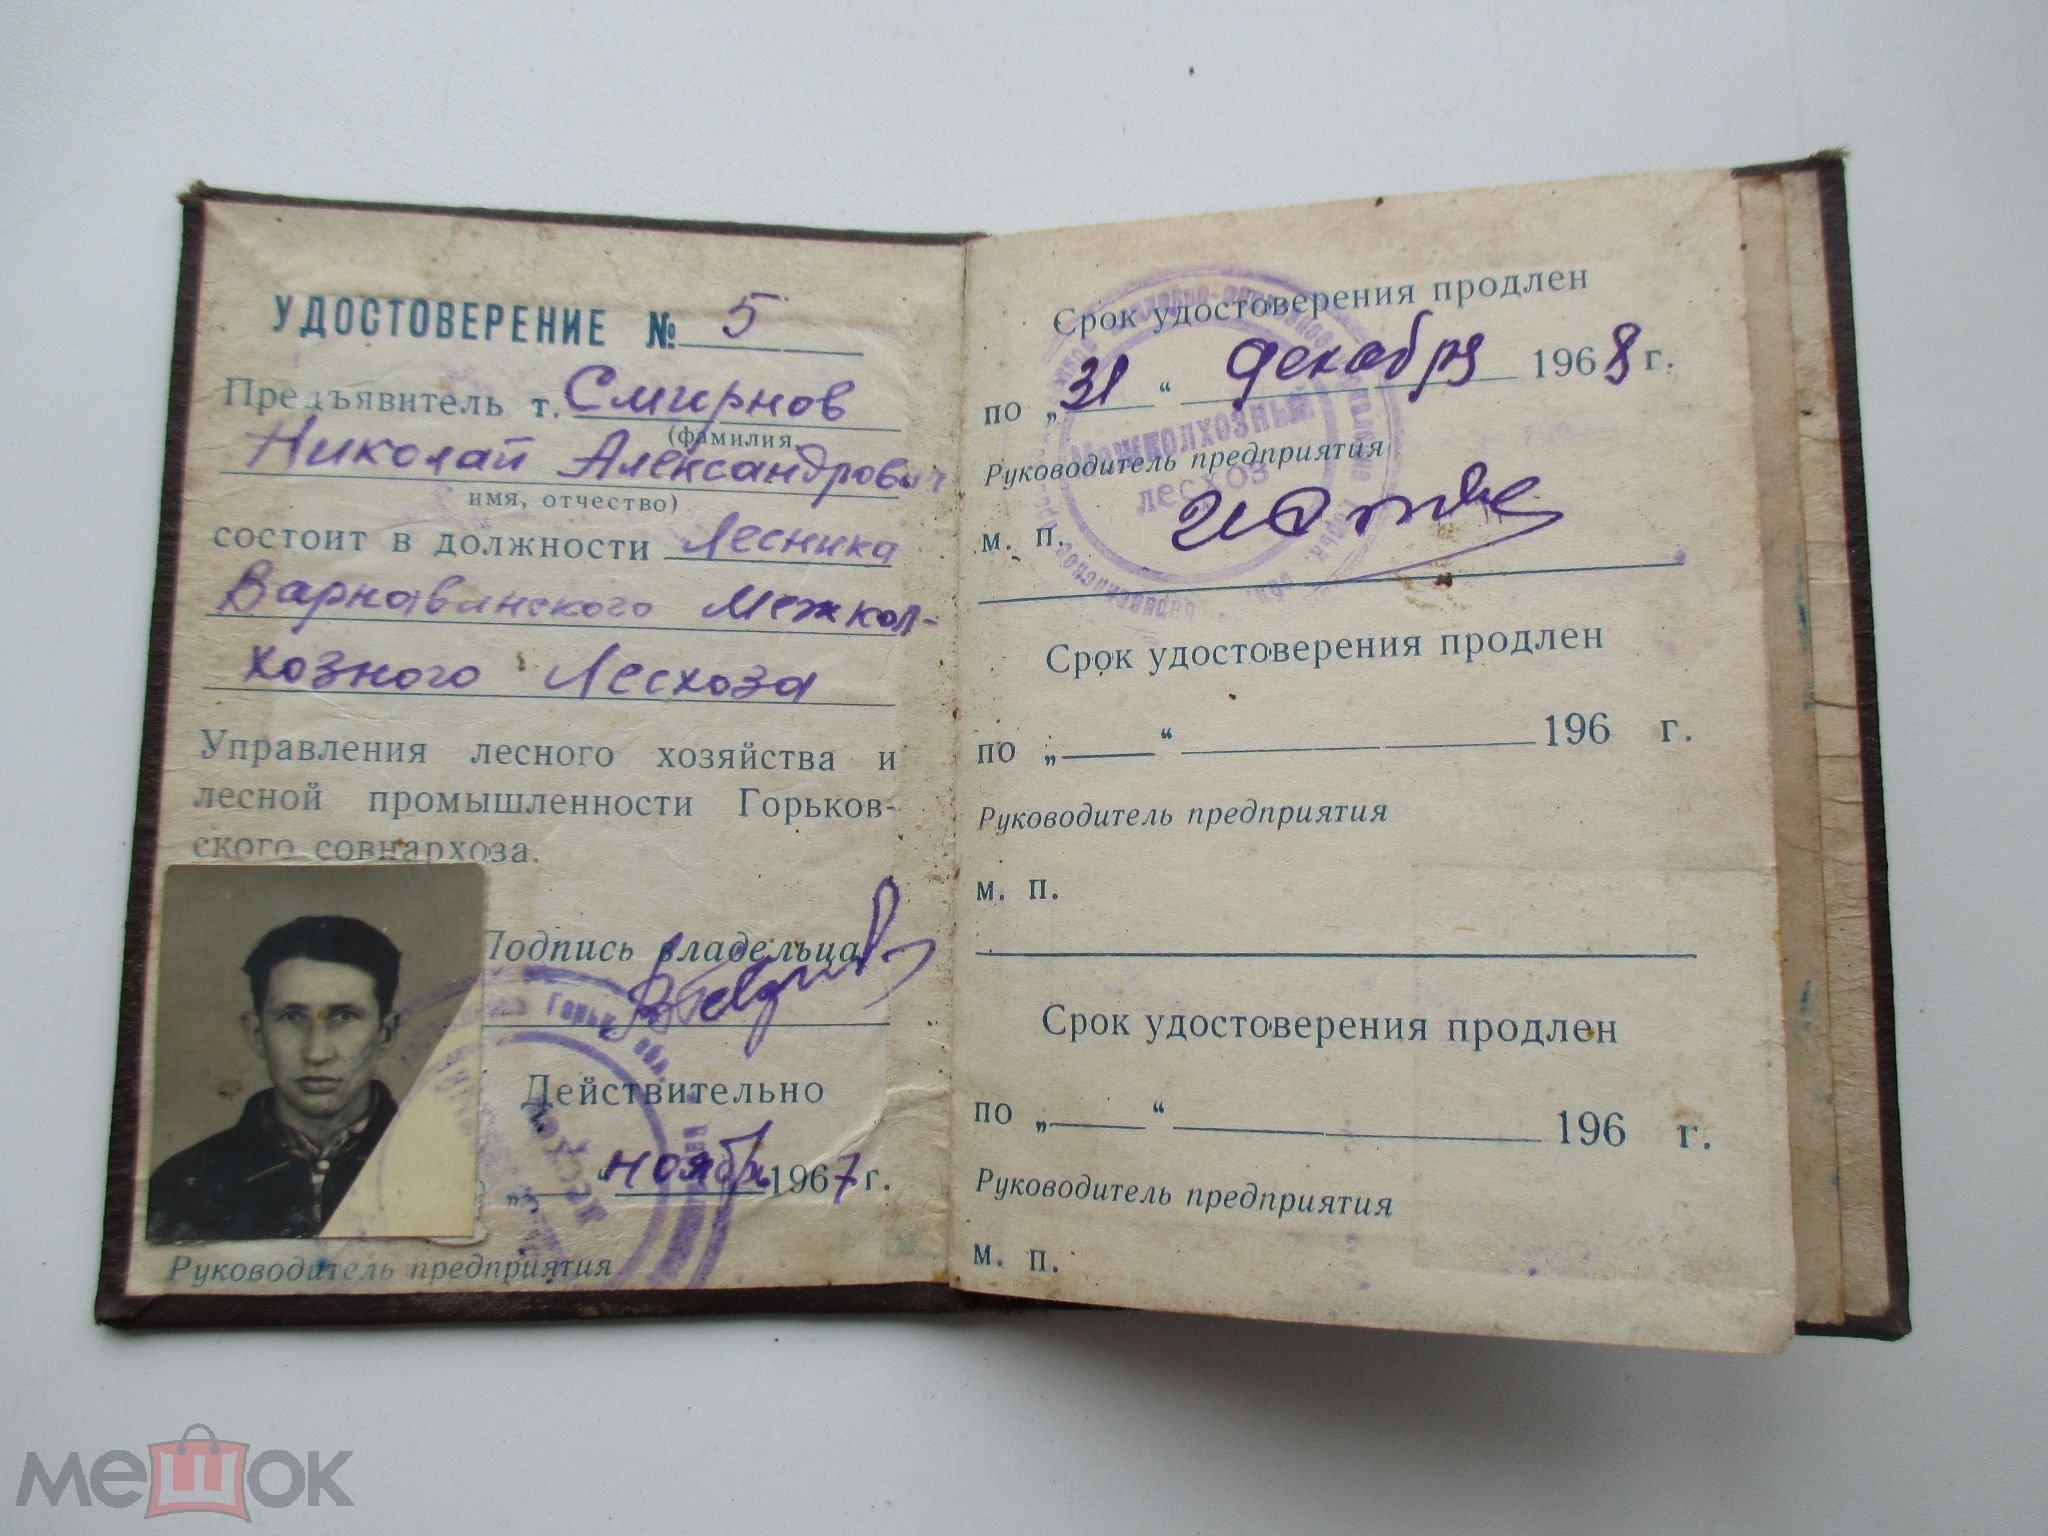 УДОСТОВЕРЕНИЕ № 5
Предъявитель т. Смирнов
(фамилия,
Николай Александрович
имя, отчество)
состоит в должности Лесника
Варнавинского Межкол-
хозного Лесхоза
Управления лесного хозяйства и
лесной промышленности Горьков-
ского совнархоза.
Подпись владельца
Действительно
„ “ ноябрь 1967 г.
Руководитель предприятия
Горьк обл.
лесхоз
Срок удостоверения продлен
по „31“ декабря 1968 г.
Руководитель предприятия
м. п.
Межколхозный
лесхоз
Срок удостоверения продлен
по „ “ 196 г.
Руководитель предприятия
м. п.
Срок удостоверения продлен
по „ “ 196 г.
Руководитель предприятия
м. п.
мешок